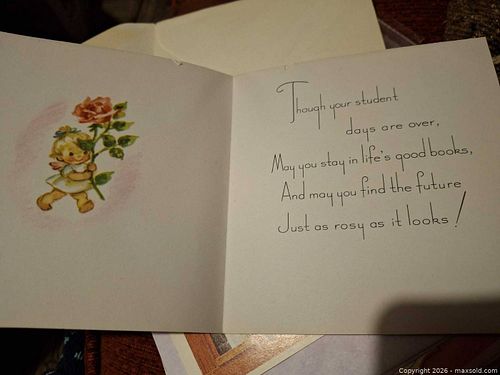 Though your student
days are over,
May you stay in life's good books,
And may you find the future
Just as rosy as it looks!
Copyright 2026 - maxsold.com